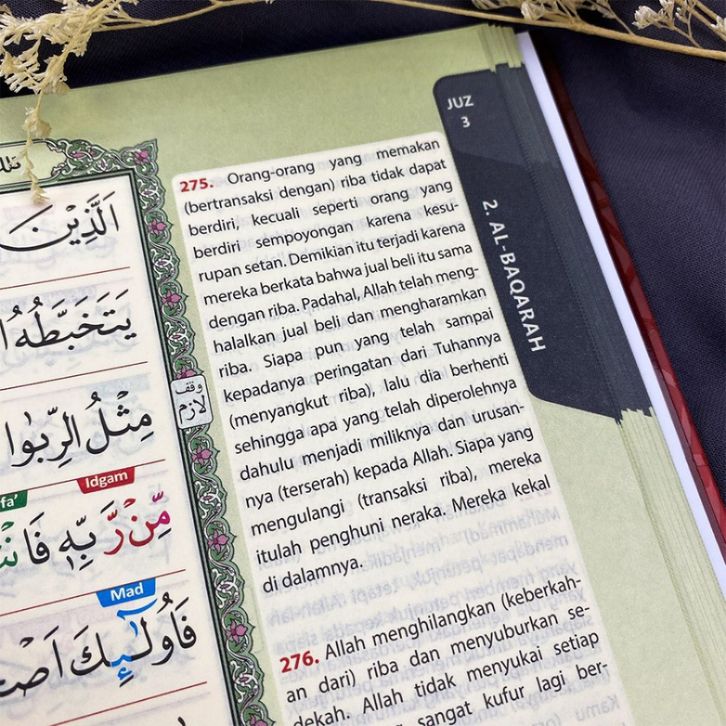 JUZ
3
2. AL-BAQARAH
الَّذِيْنَ
يَتَخَبَّطُهُ
وقف
لازم
مِثْلُ الرِّبٰوا
Idgam
مِّنْ رَّبِّهٖ
Mad
فَاُولٰۤىِٕكَ
275. Orang-orang yang memakan
(bertransaksi dengan) riba tidak dapat
berdiri, kecuali seperti orang yang
berdiri sempoyongan karena kesu-
rupan setan. Demikian itu terjadi karena
mereka berkata bahwa jual beli itu sama
dengan riba. Padahal, Allah telah meng-
halalkan jual beli dan mengharamkan
riba. Siapa pun yang telah sampai
kepadanya peringatan dari Tuhannya
(menyangkut riba), lalu dia berhenti
sehingga apa yang telah diperolehnya
dahulu menjadi miliknya dan urusan-
nya (terserah) kepada Allah. Siapa yang
mengulangi (transaksi riba), mereka
itulah penghuni neraka. Mereka kekal
di dalamnya.
276. Allah menghilangkan (keberkah-
an dari) riba dan menyuburkan se-
dekah. Allah tidak menyukai setiap
sangat kufur lagi ber-